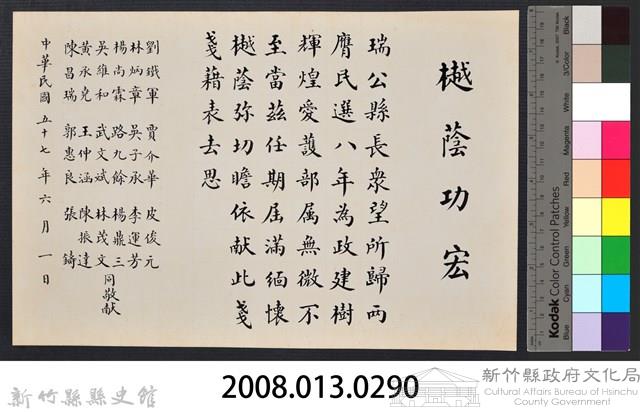 樾蔭功宏
瑞公縣長衆望所歸兩
膺民選八年為政建樹
輝煌愛護部属無微不
至當茲任期屆滿緬懷
樾蔭弥切瞻依献此戔
戔藉表去思
劉鐵軍 賈介華 皮俊元
林炳章 吳子承 李運芳
楊尚霖 路九餘 楊鼎三
吳維和 武文斌 林茂文
黃永堯 王仲涵 陳振達
陳昌瑞 郭惠良 張錡
同敬献
中華民國五十七年六月一日
Kodak Color Control Patches
Blue
Cyan
Green
Yellow
Red
Magenta
White
3/Color
Black
新竹縣縣史館
2008.013.0290
新竹縣政府文化局
Cultural Affairs Bureau of Hsinchu
County Government